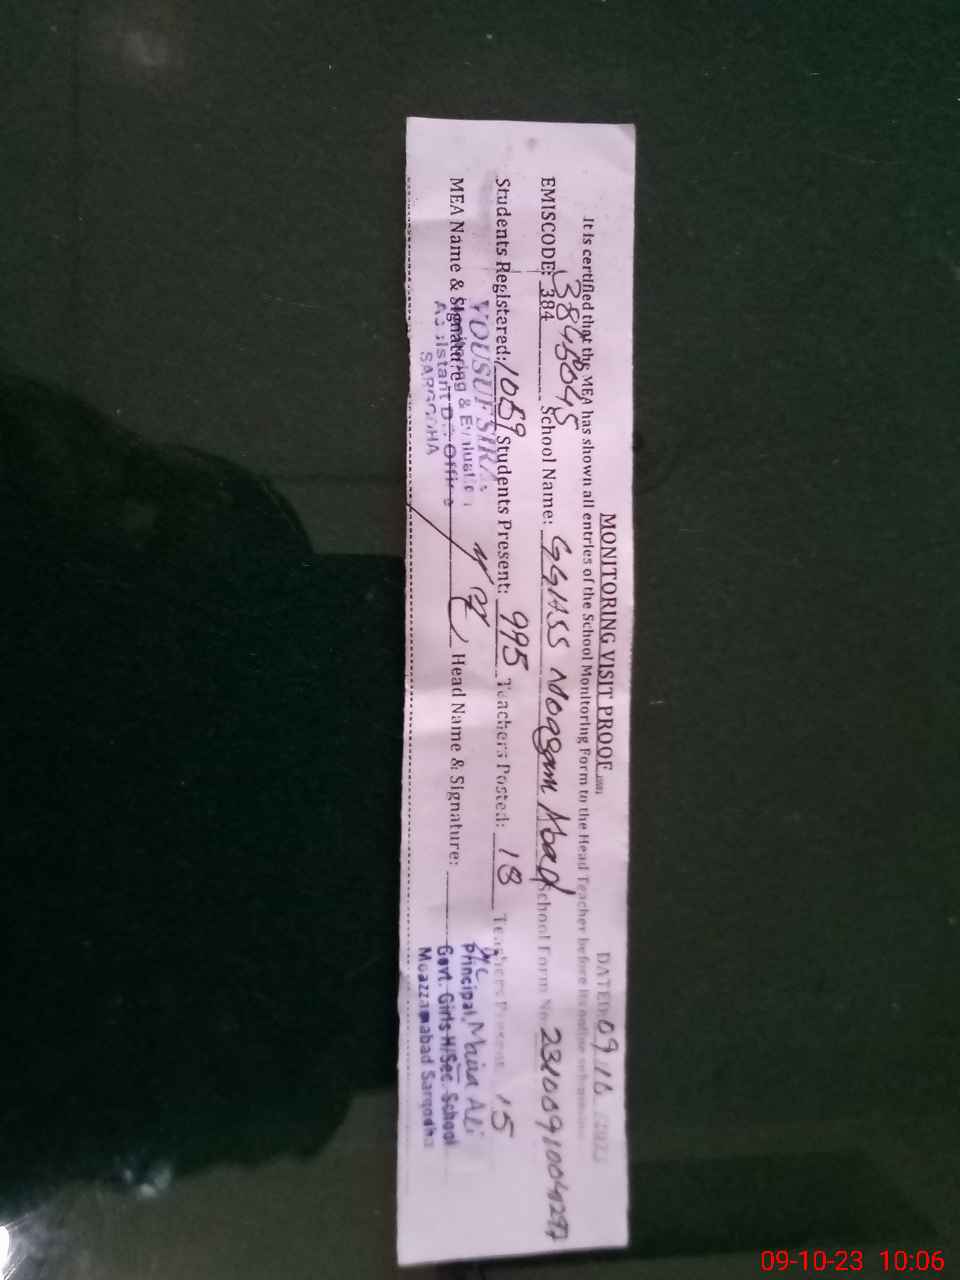 MONITORING VISIT PROOF
DATED: 09.10.2023
It is certified that the MEA has shown all entries of the School Monitoring Form to the Head Teacher before its online
EMISCODE: 384 School Name: GGHSS Moazam Abad School Form No.
Students Registered: Students Present: 995 Teachers Posted: 18 Teachers Present 15
MEA Name & Signature: Head Name & Signature:
Monitoring & Evaluation
Assistant
SARGODHA
Principal, Maira Ali
Govt. Girls H/Sec. School
Moazzamabad Sargodha
09-10-23 10:06